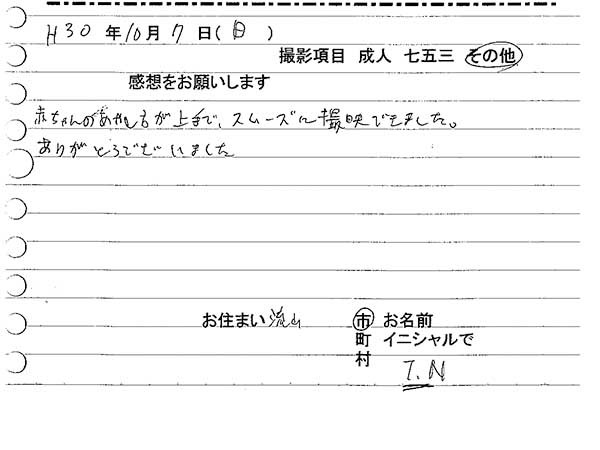 H30年10月7日(日)
撮影項目 成人 七五三 その他
感想をお願いします
赤ちゃんのあやし方が上手で、スムーズに撮映できました。
ありがとうございました
お住まい 流山 市 お名前
町 イニシャルで
村 T.N